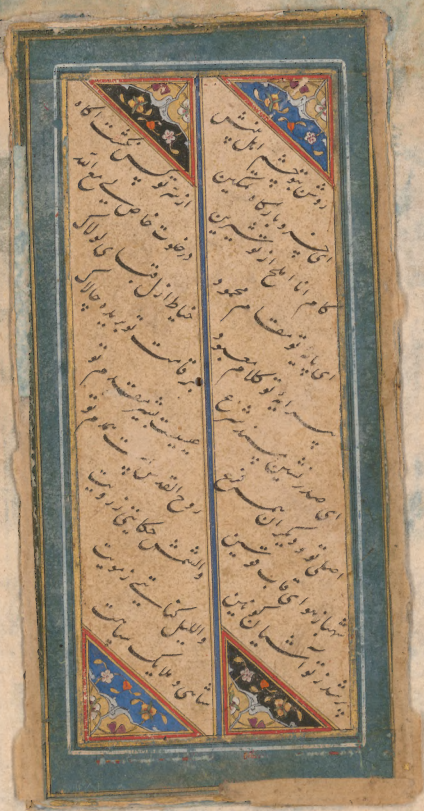 روشن بتو چشم اهل بینش
ای خسرو بارگاه تمکین
کام انا املح از تو شیرین
ای پایه تو مقام محمود
پیرایه تو کلام معبود
ای صدرنشین مسند شرع
اصلی تو و دیگران همه فرع
شهباز هوای قاب قوسین
پر شد ز تو آشیان کونین
از سر تو کس نگشت آگاه
در خلوت خاص لی مع الله
خیاط ازل قبای لولاک
بر قامت تو بریده چالاک
عیسیت بشیر مقدم تو
روح القدس است همدم تو
والشمش حکایتی ز رویت
واللیل کنایتی ز مویت
شاهی و ملایک سپاهت